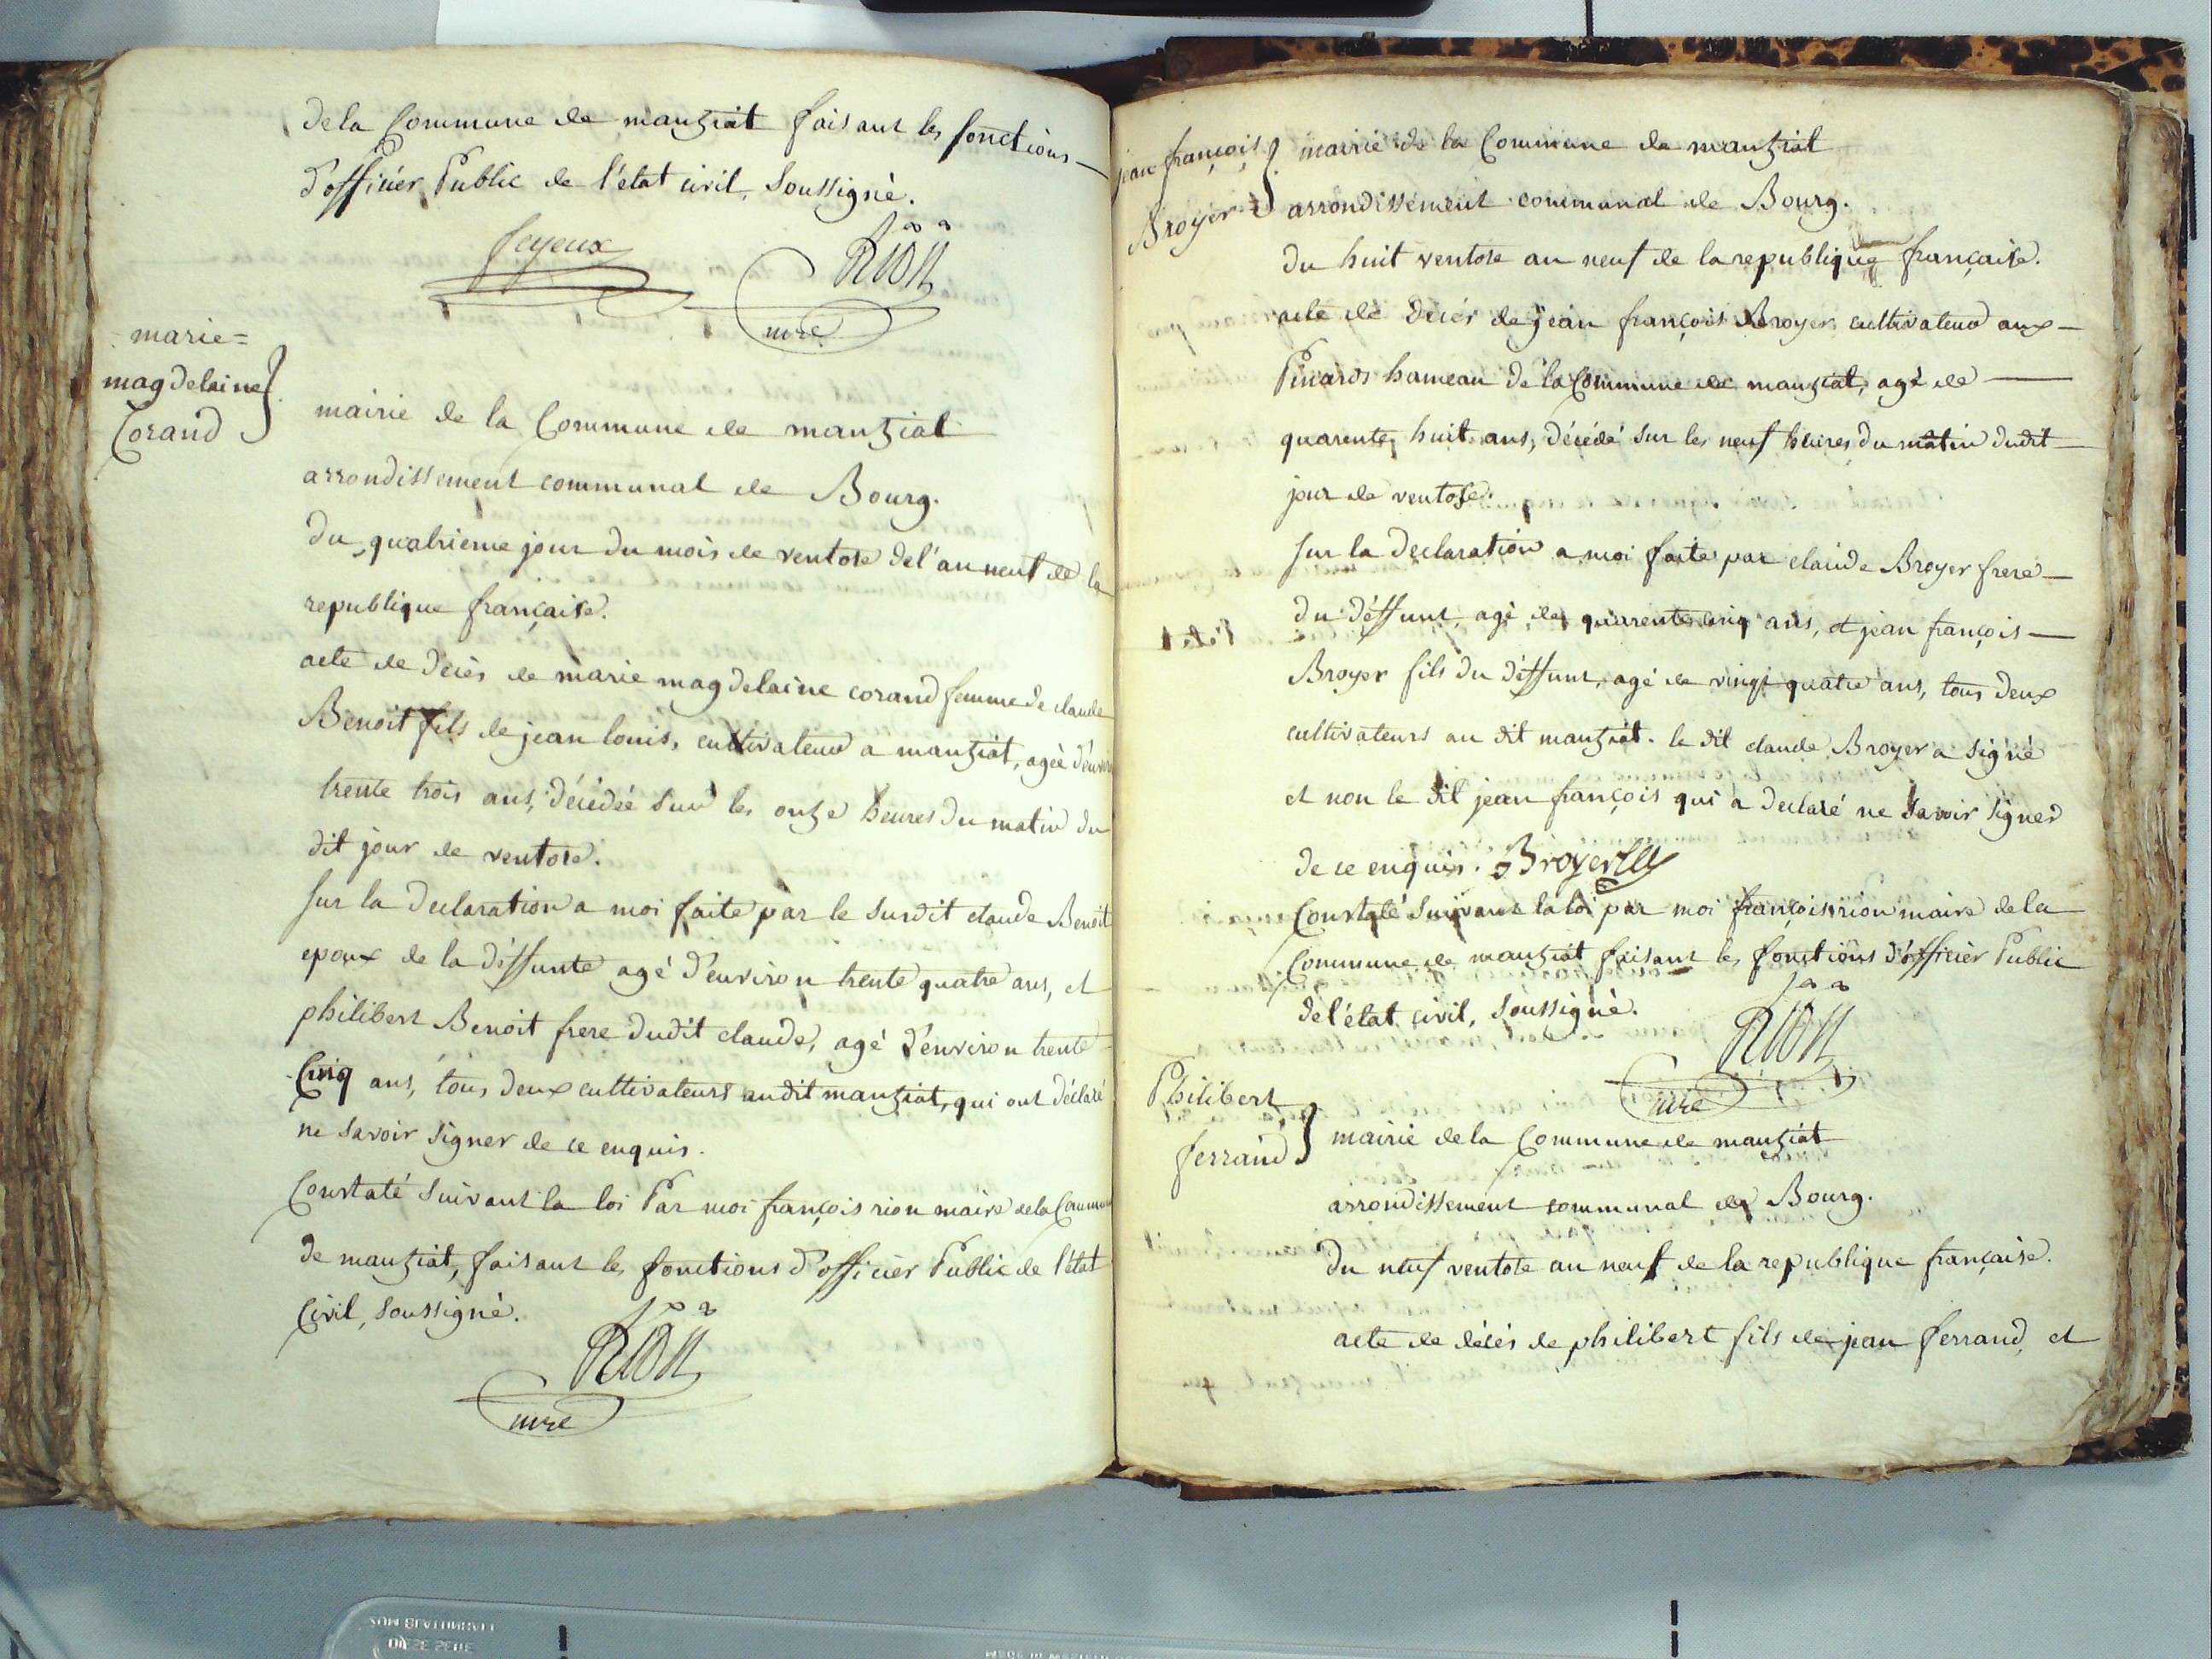 dela Commune de mantziat faisant les fonctions
d'officier Public de l'état civil, Soussigné.
feyeux
Rion
mre
marie=
magdelaine
Corand
mairie de la Commune de mantziat
arrondissement communal de Bourg.
du quatrieme jour du mois de ventose del'an neuf de la
republique française.
acte de décès de marie magdelaine corand femme de claude
Benoit fils de jean louis, cultivateur a mantziat, ageé d'environ
trente trois ans, décédeé sur les onze heures du matin du
dit jour de ventose.
Sur la declaration a moi faite par le susdit claude Benoit
epoux de la déffunte agé d'environ trente quatre ans, et
philibert Benoit frere dudit claude, agé d'environ trente
Cinq ans, tous deux cultivateurs audit mantziat, qui ont déclaré
ne savoir signer de ce enquis.
Constaté Suivant la loi Par moi françois rion maire dela Commune
de mantziat, faisant les fonctions d'officier Public de l'état
Civil, soussigné.
Rion
mre
jean françois
Broyer
mairie de la Commune de mantziat
arrondissement communal de Bourg.
du huit ventose an neuf de la republique française.
acte de décés de jean françois Broyer cultivateur aux
Pinards hameau de la Commune de mantziat, agé de
quarente huit ans, décédé sur les neuf heures du matin dudit
jour de ventose.
Sur la declaration a moi faite par claude Broyer frere
du déffunt, agé de quarente cinq ans, et jean françois
Broyer fils du déffunt, agé de vingt quatre ans, tous deux
cultivateurs au dit mantziat. le dit claude Broyer a signé
et non le dit jean françois qui a declaré ne savoir signer
de ce enquis. Broyer
Constaté Suivant la loi par moi françois rion maire dela
Commune de mantziat faisant les fonctions d'officier Public
de l'état civil, soussigné.
Rion
mre
Philibert
ferrand
mairie dela Commune de mantziat
arrondissement communal de Bourg.
du neuf ventose an neuf de la republique française.
acte de décés de philibert fils de jean ferrand et